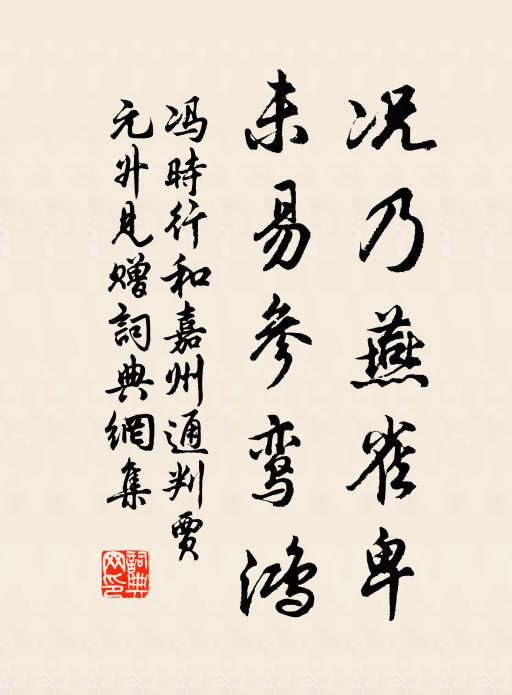 况乃燕雀卑
未易參鸾鴻
冯時行和嘉州通判賈
元升見赠詞典網集
詞典网印